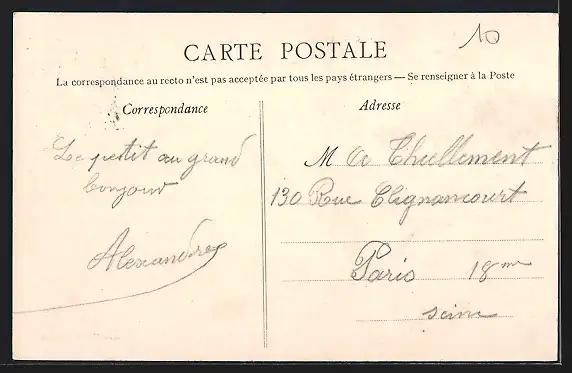 10
CARTE POSTALE
La correspondance au recto n'est pas acceptée par tous les pays étrangers — Se renseigner à la Poste
Correspondance
Adresse
Le petit au grand
bonjour
Alexandre
M Thuillement
130 Rue Clignancourt
Paris 18me
Seine